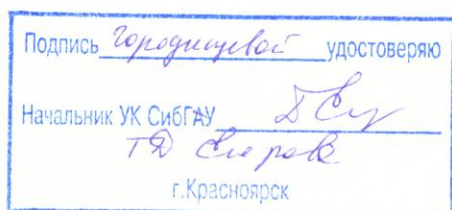 Подпись Городищевой удостоверяю
Начальник УК СибГАУ
г.Красноярск